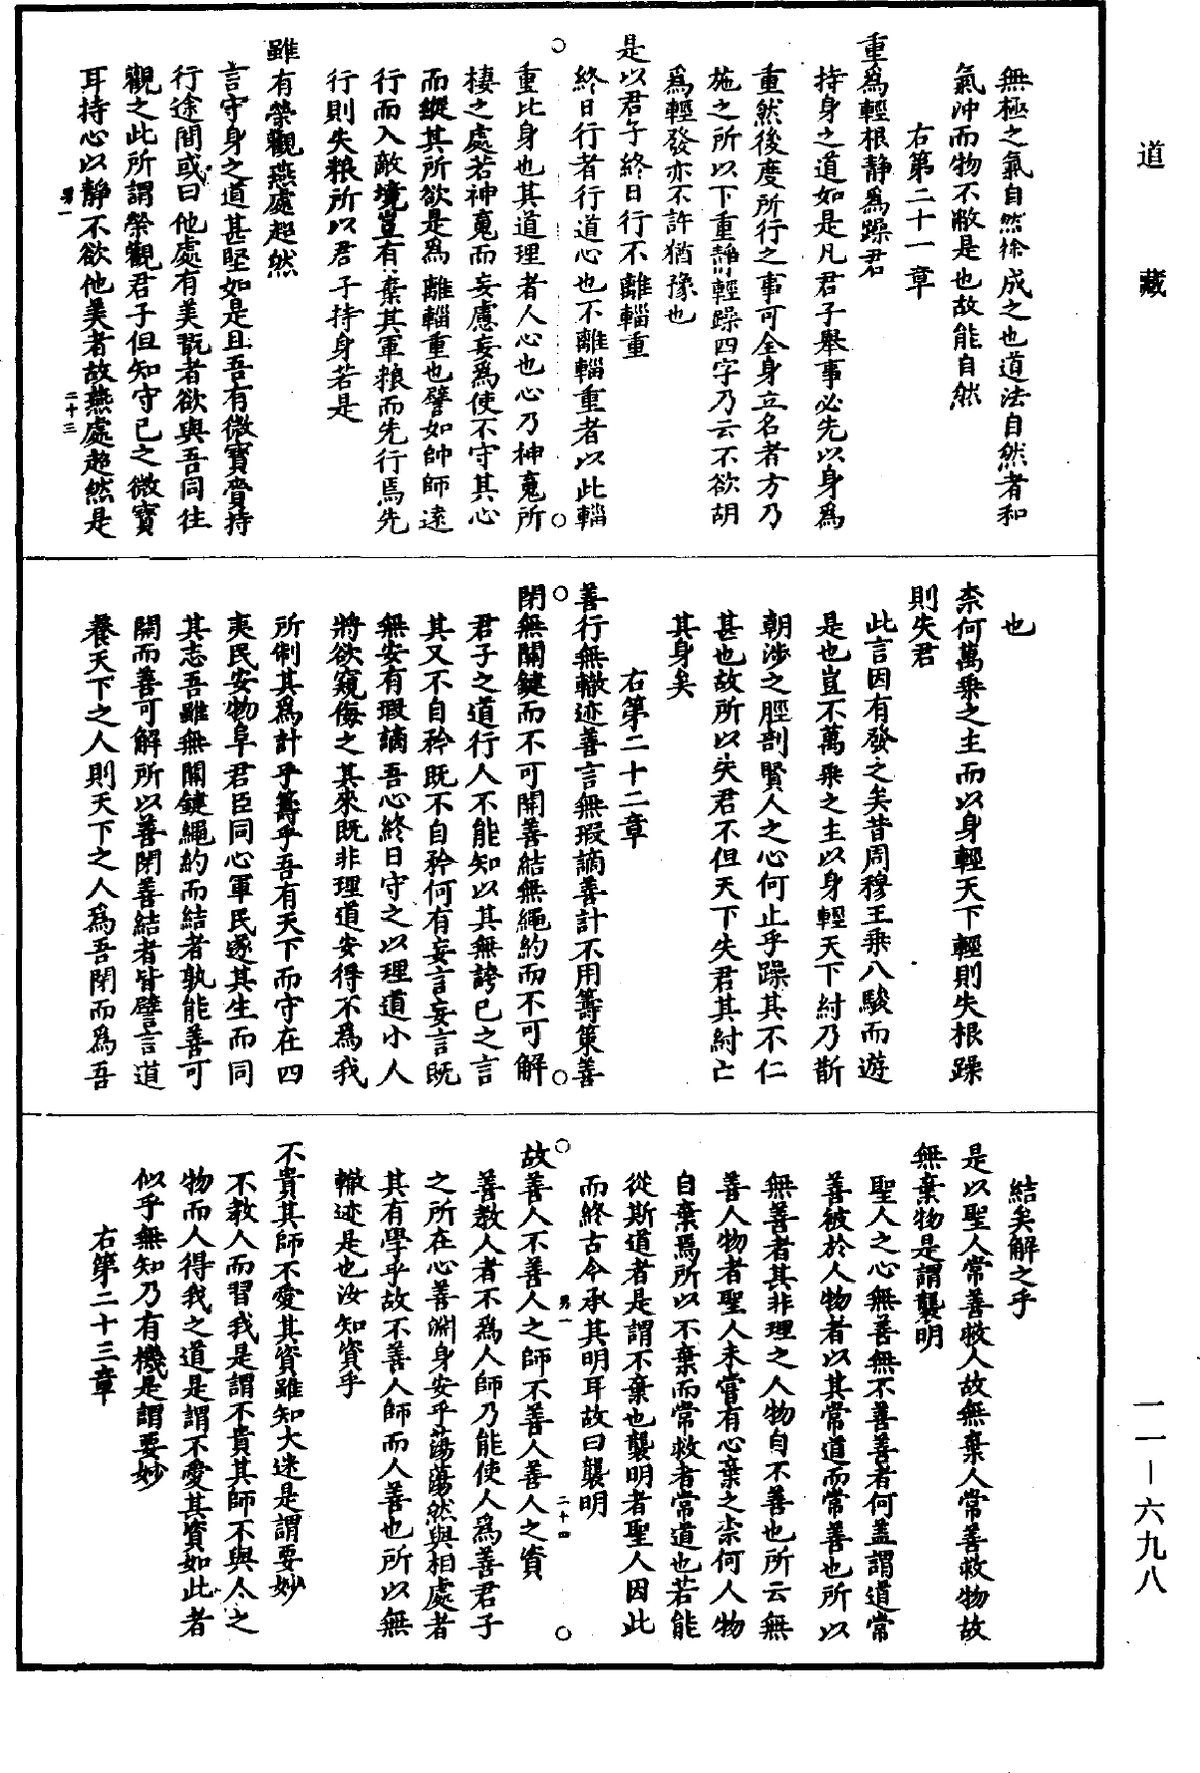 道藏
無極之氣自然徐成之也道法自然者和
氣沖而物不敝是也故能自然
右第二十一章
重為輕根靜為躁君
持身之道如是凡君子舉事必先以身為
重然後度所行之事可全身立名者方乃
施之所以下重靜輕躁四字乃云不欲胡
為輕發亦不許猶豫也
是以君子終日行不離輜重
終日行者行道心也不離輜重者以此輜
重比身也其道理者人心也心乃神䰟所
棲之處若神䰟而妄慮妄為使不守其心
而縱其所欲是為離輜重也譬如帥師遠
行而入敵境豈有棄其軍粮而先行焉先
行則失粮所以君子持身若是
雖有榮觀燕處超然
言守身之道甚堅如是且吾有微寶賫持
行途間或曰他處有美翫者欲與吾同往
觀之此所謂榮觀君子但知守己之微寶
耳持心以靜不欲他美者故燕處超然是
二十三
也
柰何萬乘之主而以身輕天下輕則失根躁
則失君
此言因有發之矣昔周穆王乘八駿而遊
是也豈不萬乘之主以身輕天下紂乃斮
朝涉之脛剖賢人之心何止乎躁其不仁
甚也故所以失君不但天下失君其紂亡
其身矣
右第二十二章
善行無轍迹善言無瑕謫善計不用籌策善
閉無關鍵而不可開善結無繩約而不可解
君子之道行人不能知以其無誇己之言
其又不自矜既不自矜何有妄言妄言既
無安有瑕謫吾心終日守之以理道小人
將欲窺侮之其來既非理道安得不為我
所制其為計乎籌乎吾有天下而守在四
夷民安物阜君臣同心軍民遂其生而同
其志吾雖無關鍵繩約而結者孰能善可
開而善可解所以善閉善結者皆譬言道
養天下之人則天下之人為吾閉而為吾
結矣解之乎
是以聖人常善救人故無棄人常善救物故
無棄物是謂襲明
聖人之心無善無不善善者何蓋謂道常
善被於人物者以其常道而常善也所以
無善者其非理之人物自不善也所云無
善人物者聖人未嘗有心棄之柰何人物
自棄焉所以不棄而常救者常道也若能
從斯道者是謂不棄也襲明者聖人因此
而終古今承其明耳故曰襲明
二十四
故善人不善人之師不善人善人之資
善教人者不為人師乃能使人為善君子
之所在心善淵身安乎蕩蕩然與相處者
其有學乎故不善人師而人善也所以無
轍迹是也汝知資乎
不貴其師不愛其資雖知大迷是謂要妙
不教人而習我是謂不貴其師不與人之
物而人得我之道是謂不愛其資如此者
似乎無知乃有機是謂要妙
右第二十三章
一一－六九八